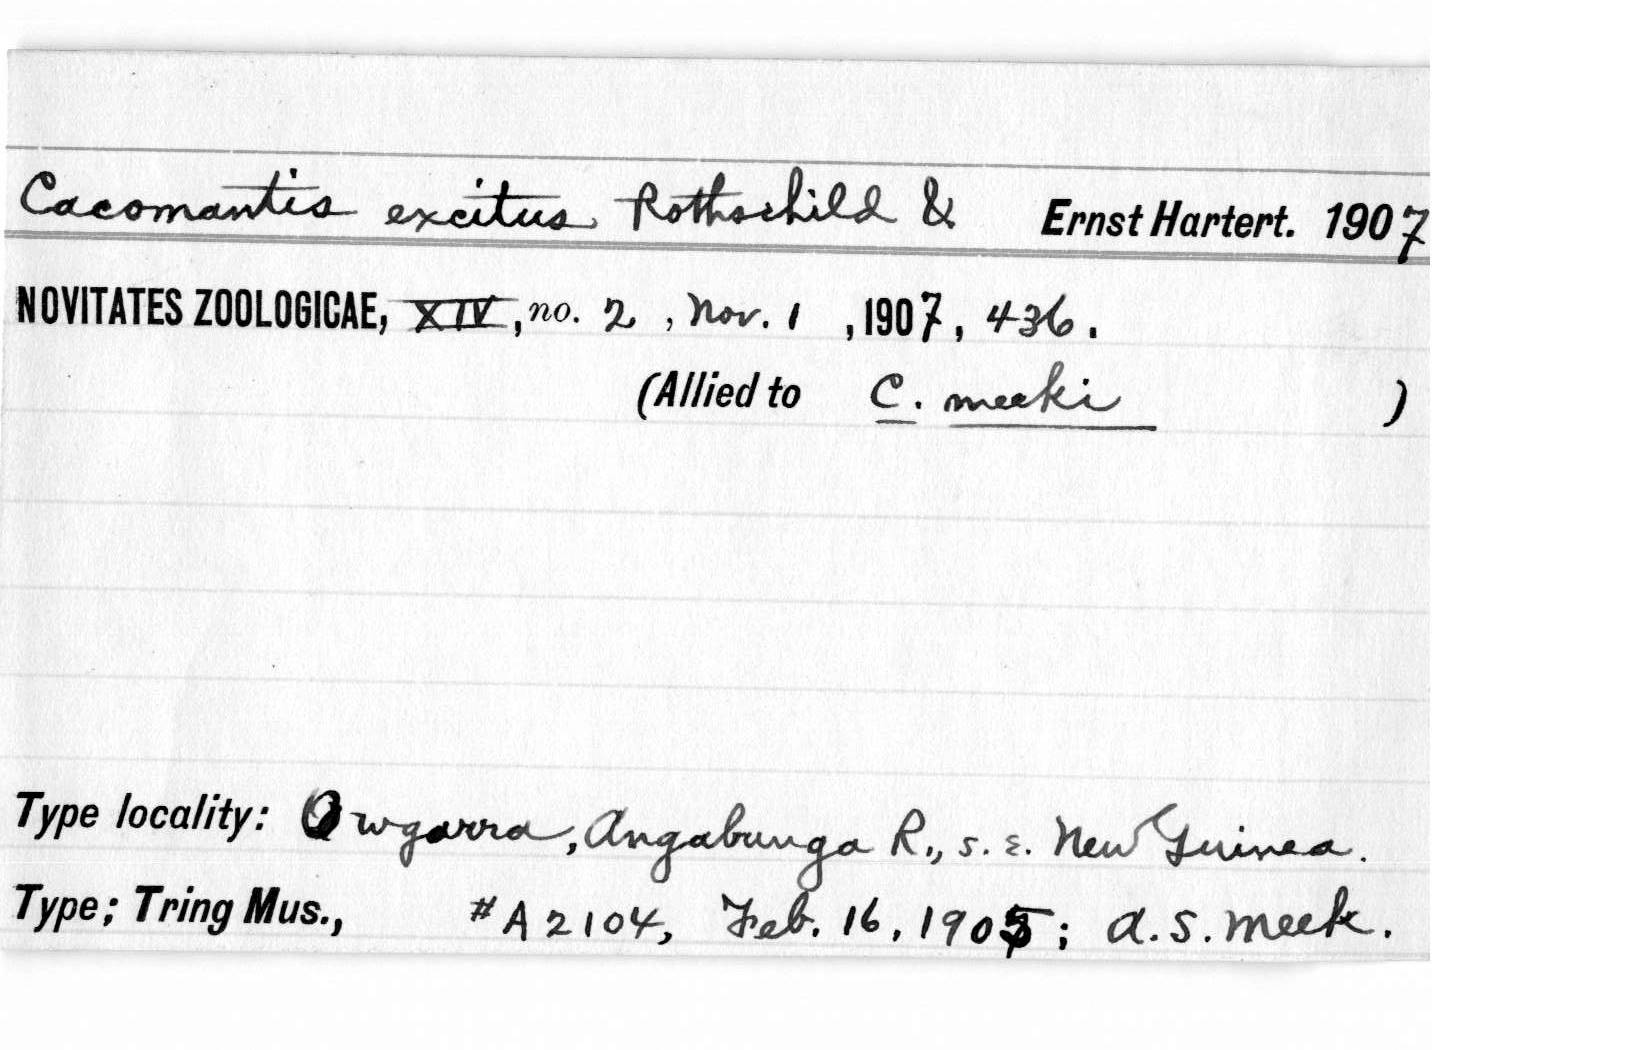 Cacomantis excitus Rothschild & Ernst Hartert. 1907
NOVITATES ZOOLOGICAE, XIV, no. 2, Nov. 1, 1907, 436.
(Allied to C. meeki )
Type locality: Owgarra, Angabunga R., s. e. New Guinea.
Type; Tring Mus., #A2104, Feb. 16, 1905; A. S. Meek.